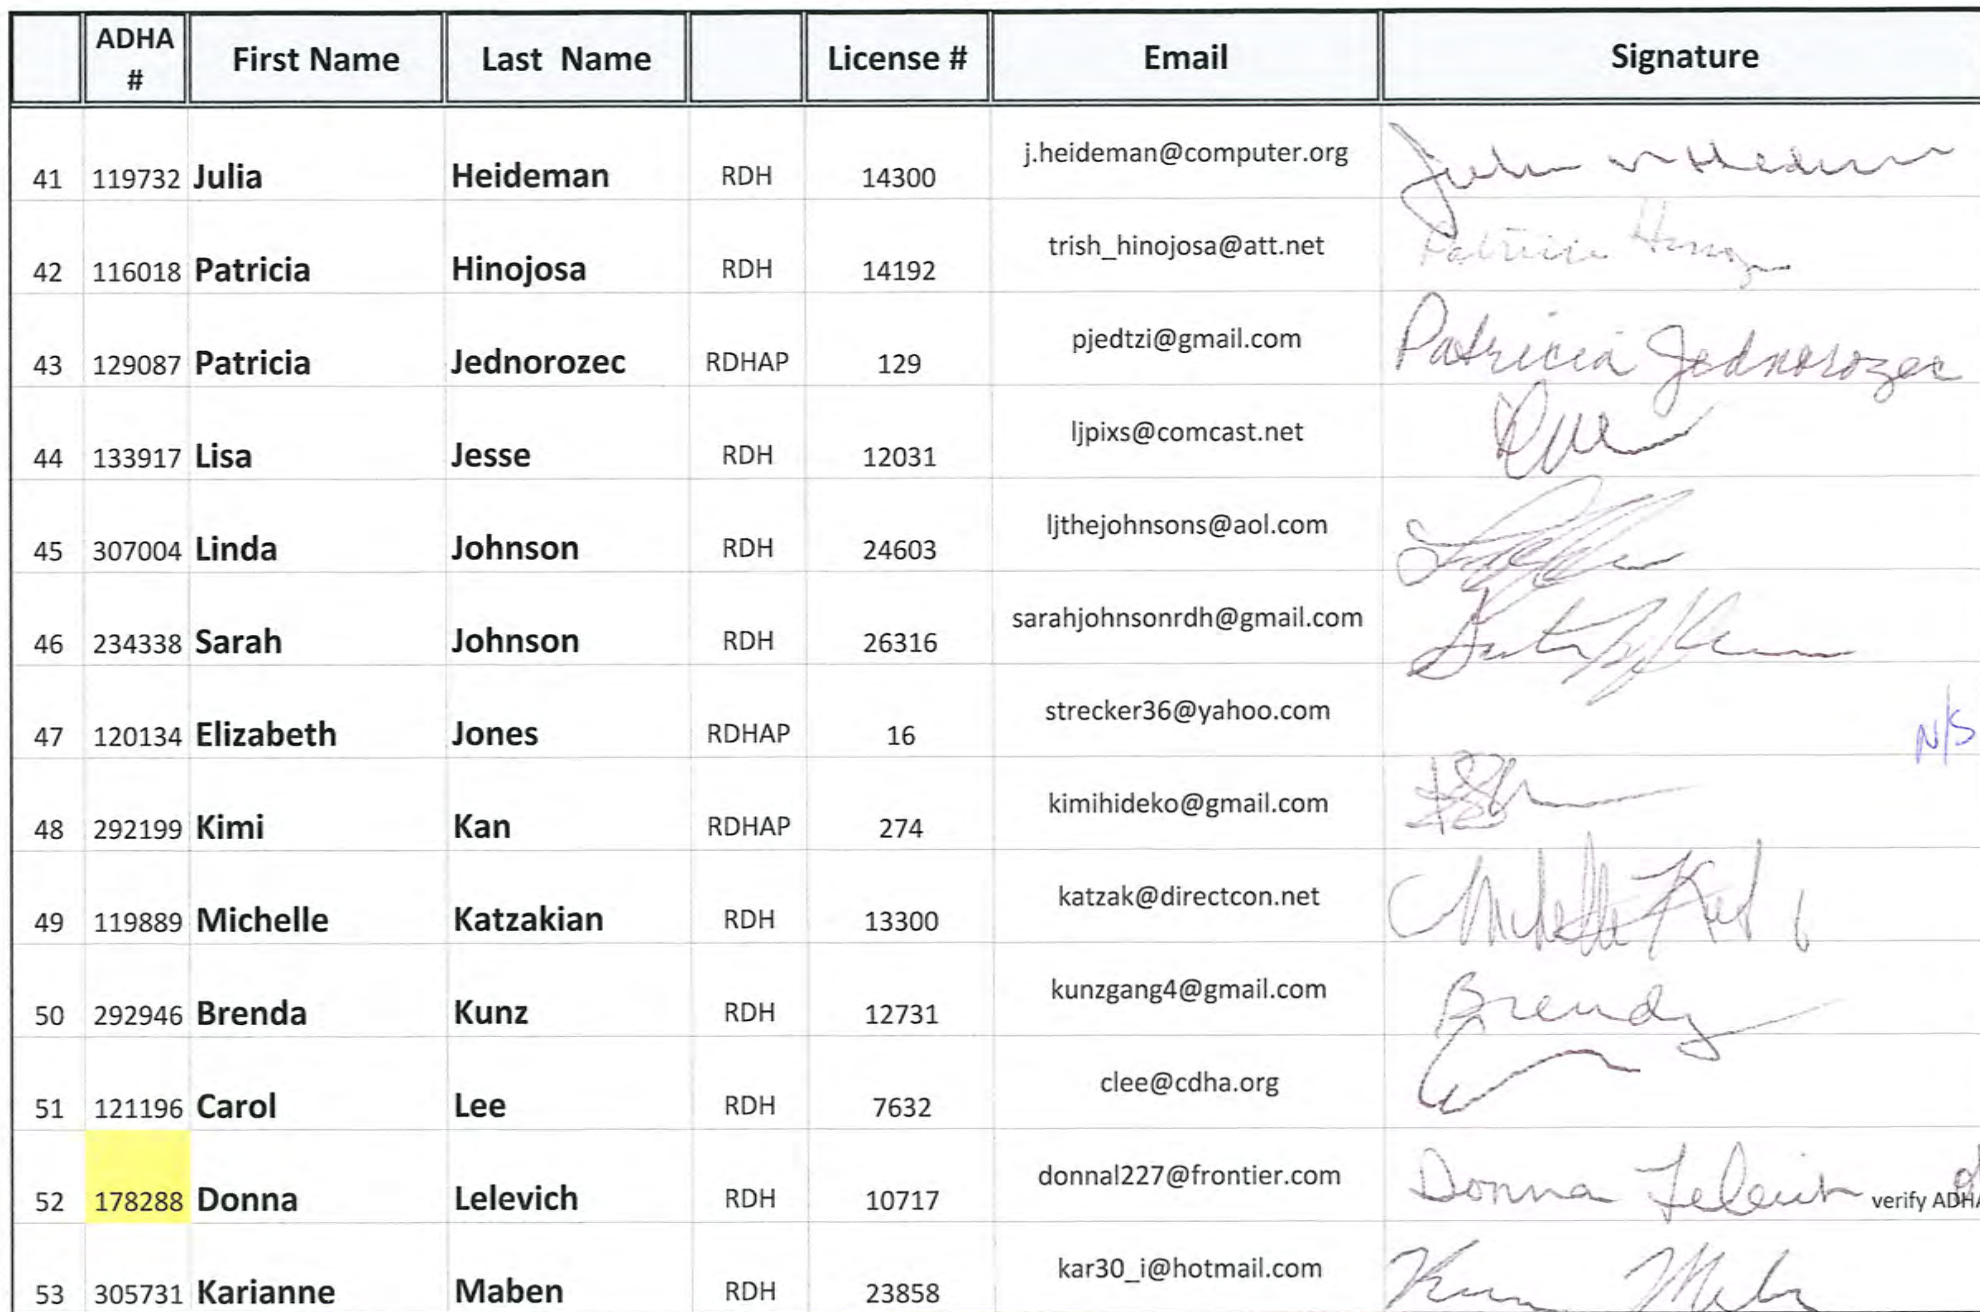 ADHA # First Name Last Name License # Email Signature
41 119732 Julia Heideman RDH 14300 j.heideman@computer.org
42 116018 Patricia Hinojosa RDH 14192 trish_hinojosa@att.net Patricia
43 129087 Patricia Jednorozec RDHAP 129 pjedtzi@gmail.com Patricia Jednorozec
44 133917 Lisa Jesse RDH 12031 ljpixs@comcast.net
45 307004 Linda Johnson RDH 24603 ljthejohnsons@aol.com
46 234338 Sarah Johnson RDH 26316 sarahjohnsonrdh@gmail.com
47 120134 Elizabeth Jones RDHAP 16 strecker36@yahoo.com N/S
48 292199 Kimi Kan RDHAP 274 kimihideko@gmail.com
49 119889 Michelle Katzakian RDH 13300 katzak@directcon.net Michelle
50 292946 Brenda Kunz RDH 12731 kunzgang4@gmail.com Brenda
51 121196 Carol Lee RDH 7632 clee@cdha.org
52 178288 Donna Lelevich RDH 10717 donnal227@frontier.com Donna Lelevich verify ADHA
53 305731 Karianne Maben RDH 23858 kar30_i@hotmail.com